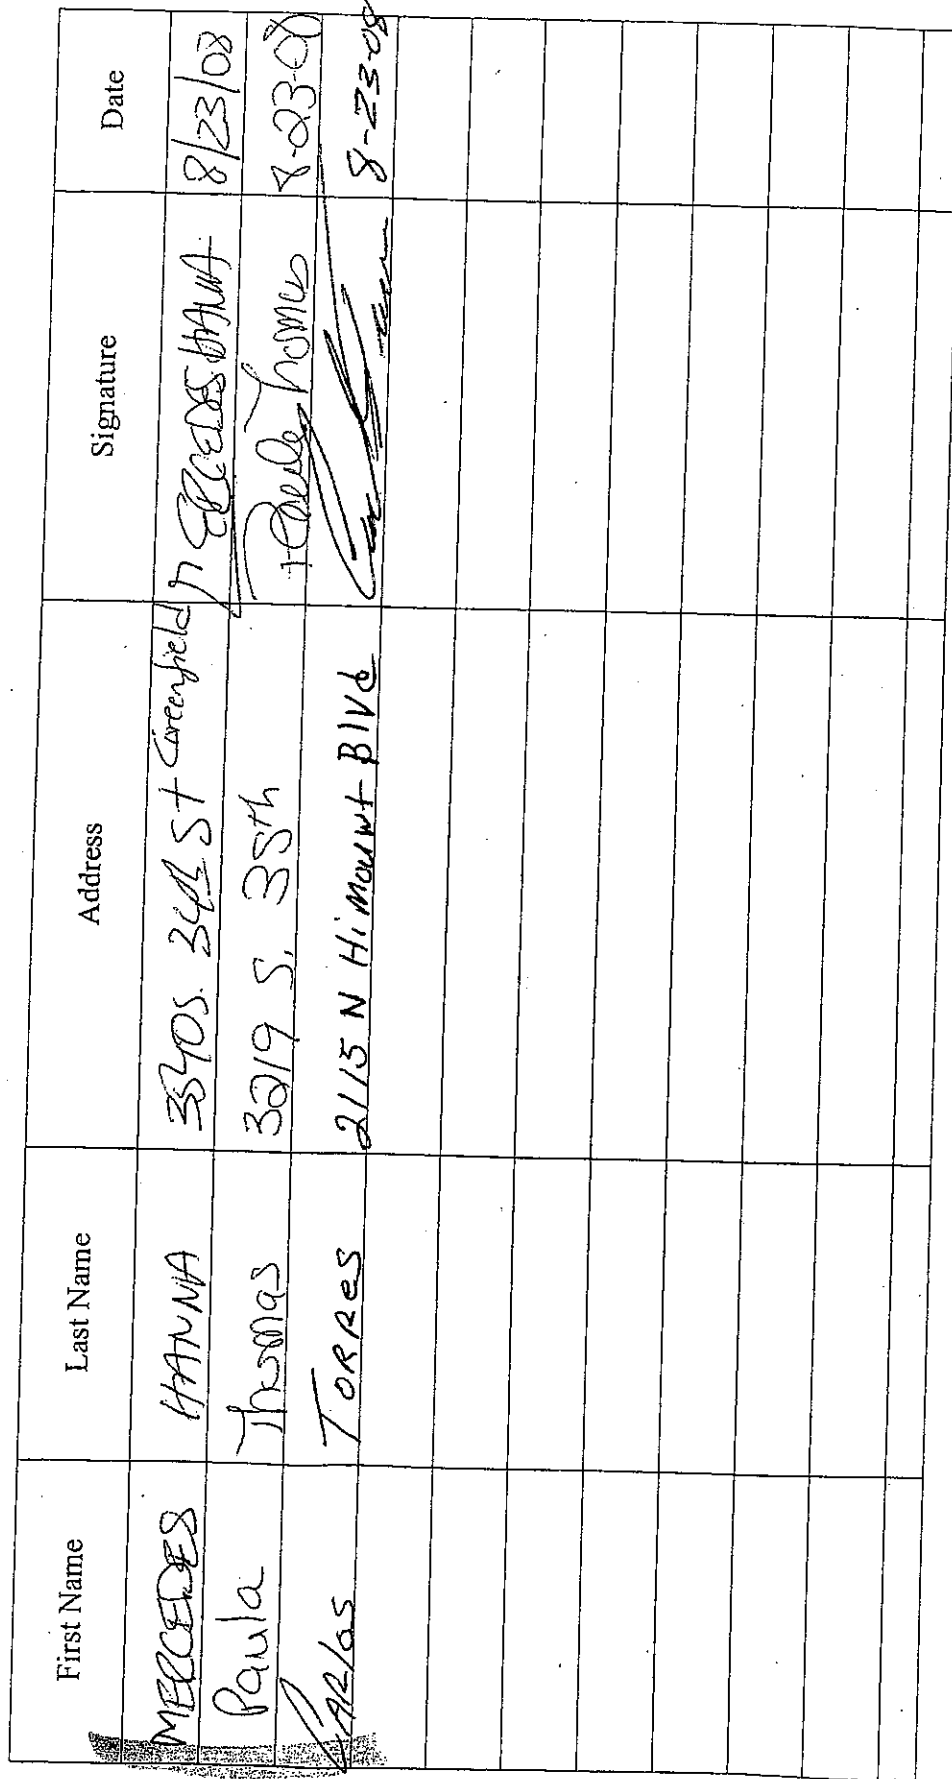 First Name Last Name Address Signature Date
MERCEDES HANNA 3340 S. 34th St Greenfield MERCEDES HANNA 8/23/08
Paula Thomas 3219 S. 35th Paula Thomas 8-23-08
CARlos TORRes 2115 N Himount Blvd 8-23-08